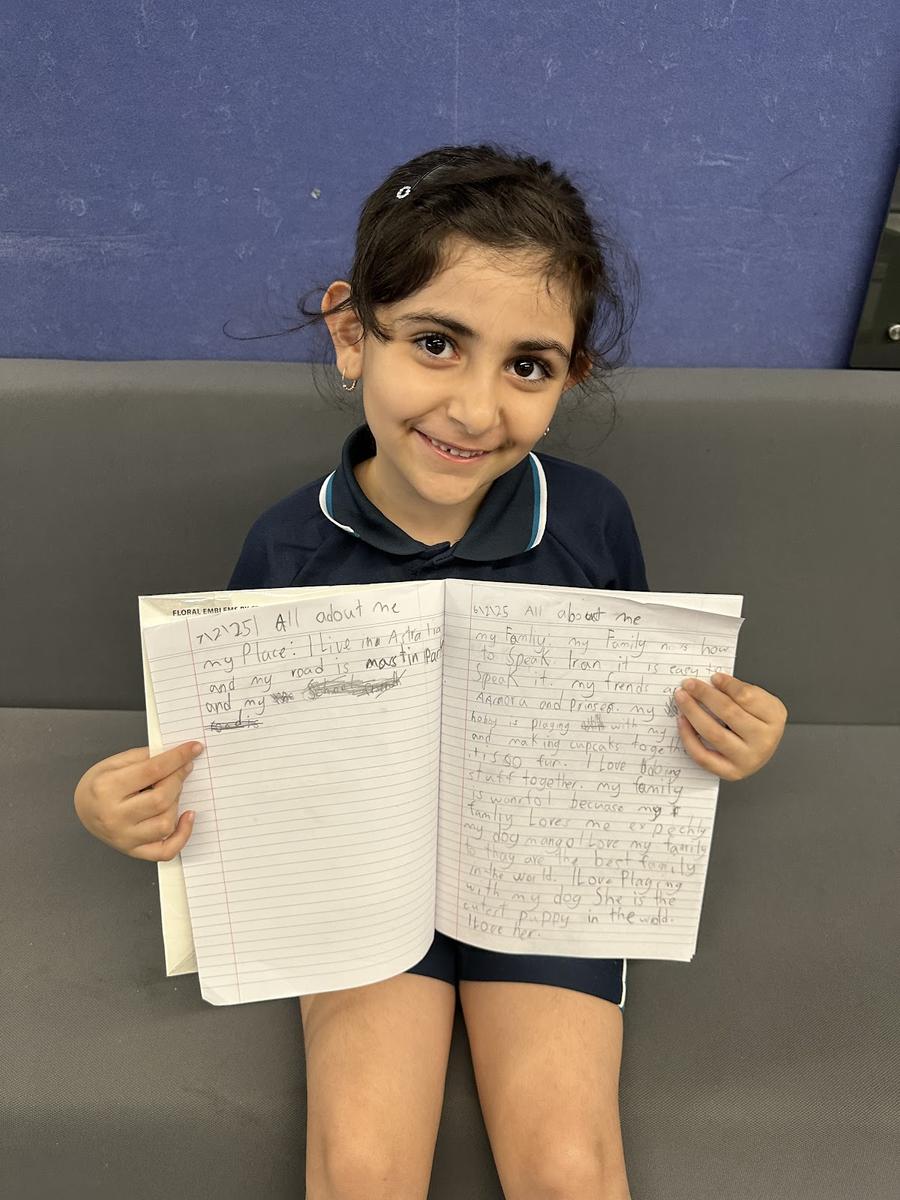 FLORAL EMBLEMS
7\2\25| All adout me
my Place: I Live in Astratra
and my road is mastin
and my
roadis
6\2\25 All about me
my Family: my Family nows how
to Speak Iran it is easy to
Speak it. my frends
AArnora and Prinseg. my
hoboy is playing with my
and making cupcaks togeth
it is so fun. I Love doing
stuff together. my family
is wonrfol becuase my
family Loves me expechly
my dog mango I Love my family
to thay are the best family
in the world. I Love Playing
with my dog She is the
cutest puppy in the wold.
I Love her.